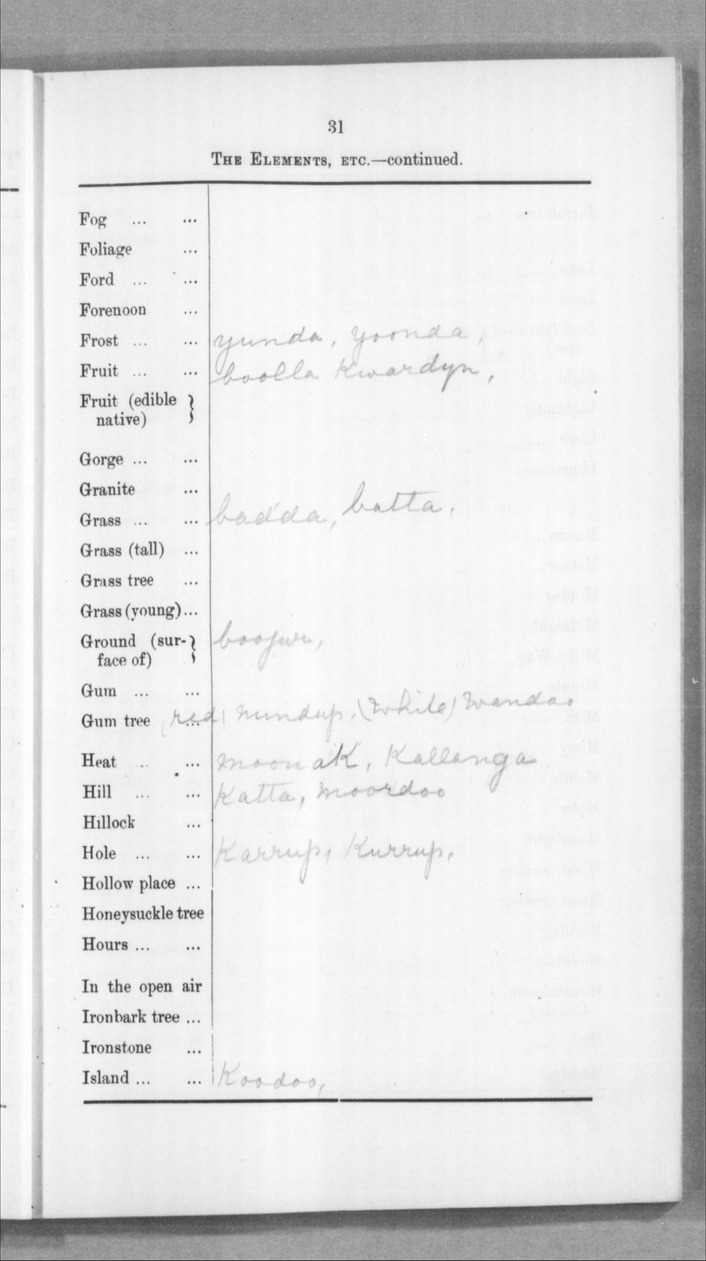 31
THE ELEMENTS, ETC.—continued.
Fog ... ...
Foliage ...
Ford ... ...
Forenoon ...
Frost ... ... yunda, yoonda,
Fruit ... ... boolla Kwardyn,
Fruit (edible
native) }
Gorge ... ...
Granite ...
Grass ... ... badda, batta,
Grass (tall) ...
Grass tree ...
Grass (young)...
Ground (sur-
face of) } boojur,
Gum ... ...
Gum tree ... (red) nundup, (White) Wandoo
Heat ... ... moonak, Kallanga
Hill ... ... Katta, moordoo
Hillock ...
Hole ... ... Karrup, Kurrup,
Hollow place ...
Honeysuckle tree
Hours ... ...
In the open air
Ironbark tree ...
Ironstone ...
Island ... ... Koodoo,